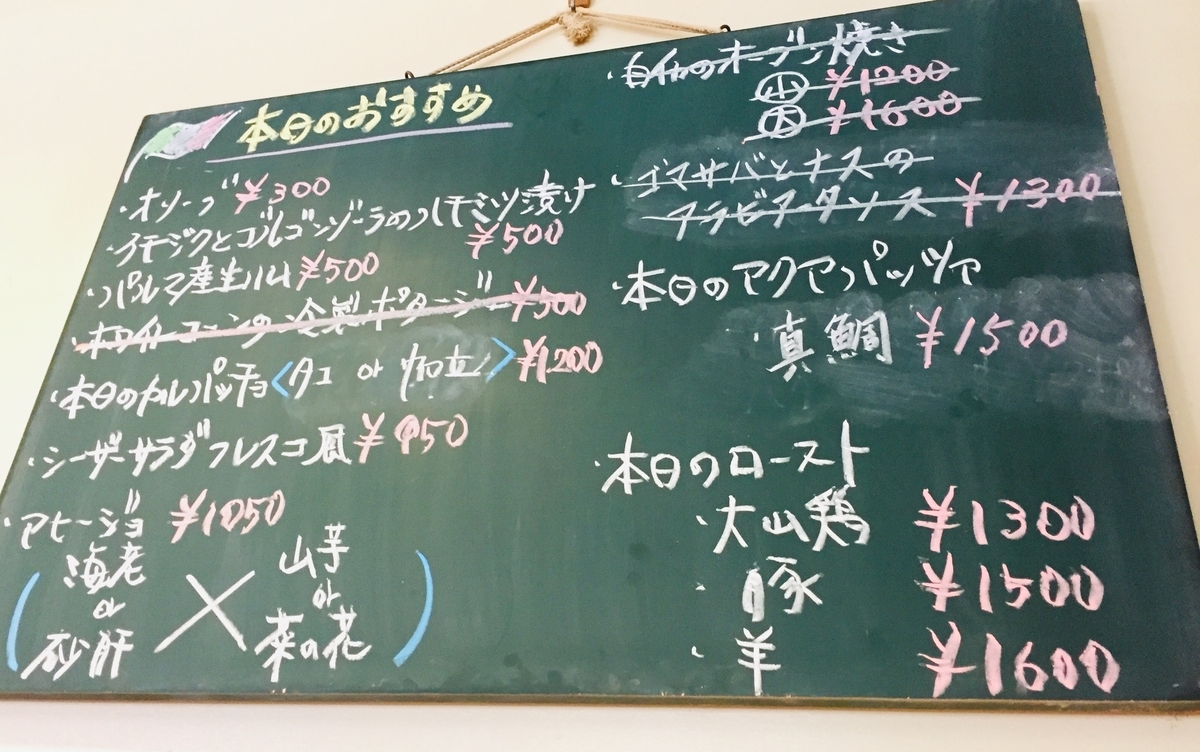 本日のおすすめ
・オリーブ ¥300
・イチジクとゴルゴンゾーラのハチミツ漬け
¥500
・パルマ産生ハム ¥500
・ホワイトコーンの冷製ポタージュ ¥500
・本日のカルパッチョ<タコ or 帆立> ¥1200
・シーザーサラダフレスコ風 ¥950
・アヒージョ ¥1050
(海老 or 砂肝 × 山芋 or 菜の花)
・白イカのオーブン焼き
小 ¥1200
大 ¥1600
・ゴマサバとナスの
アラビアータソース ¥1300
・本日のアクアパッツァ
・真鯛 ¥1500
・本日のロースト
・大山鶏 ¥1300
・豚 ¥1500
・羊 ¥1600